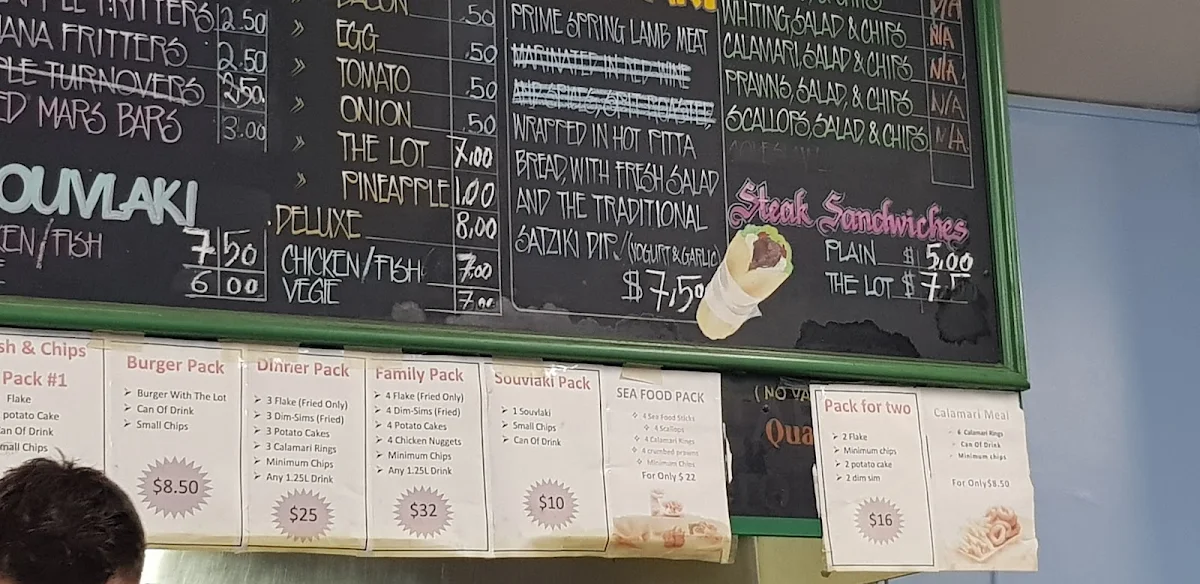 FRITTERS 2.50
ANA FRITTERS 2.50
PLE TURNOVERS 2.50
ED MARS BARS 3.00
OUVLAKI
KEN/FISH 7 50
6 00
BACON .50
» EGG .50
» TOMATO .50
» ONION .50
» THE LOT X.00
» PINEAPPLE 1.00
DELUXE 8.00
CHICKEN/FISH 7.00
VEGIE 7.00
PRIME SPRING LAMB MEAT
MARINATED IN RED WINE
AND SPICES, SPIT ROASTED,
WRAPPED IN HOT PITTA
BREAD, WITH FRESH SALAD
AND THE TRADITIONAL
SATZIKI DIP/(YOGURT & GARLIC)
$7.50
N/A
WHITING SALAD & CHIPS N/A
CALAMARI, SALAD & CHIPS N/A
PRAWNS, SALAD, & CHIPS N/A
SCALLOPS, SALAD & CHIPS N/A
Steak Sandwiches
PLAIN $ 5.00
THE LOT $ 7.5
sh & Chips
Pack #1
Flake
potato Cake
an Of Drink
mall Chips
Burger Pack
Burger With The Lot
Can Of Drink
Small Chips
$8.50
Dinner Pack
3 Flake (Fried Only)
3 Dim-Sims (Fried)
3 Potato Cakes
3 Calamari Rings
Minimum Chips
Any 1.25L Drink
$25
Family Pack
4 Flake (Fried Only)
4 Dim-Sims (Fried)
4 Potato Cakes
4 Chicken Nuggets
Minimum Chips
Any 1.25L Drink
$32
Souvlaki Pack
1 Souvlaki
Small Chips
Can Of Drink
$10
SEA FOOD PACK
4 Sea Food Sticks
4 Scallops
4 Calamari Rings
4 crumbed prawns
Minimum Chips
For Only $ 22
(NO VA
Qua
Pack for two
2 Flake
Minimum chips
2 potato cake
2 dim sim
$16
Calamari Meal
6 Calamari Rings
Can Of Drink
Minimum chips
For Only$8.50